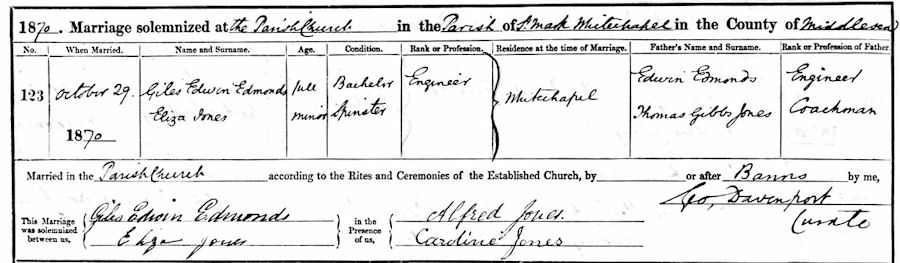 1870. Marriage solemnized at the Parish Church in the Parish of St. Mark Whitechapel in the County of Middlesex
No. When Married. Name and Surname. Age. Condition. Rank or Profession. Residence at the time of Marriage. Father's Name and Surname. Rank or Profession of Father.
123 October 29. Giles Edwin Edmonds full Bachelor Engineer Whitechapel Edwin Edmonds Engineer
1870 Eliza Jones minor Spinster Thomas Gibbs Jones Coachman
Married in the Parish Church according to the Rites and Ceremonies of the Established Church, by or after Banns by me,
Geo, Davenport
Curate
This Marriage was solemnized between us,
Giles Edwin Edmonds
Eliza Jones
in the Presence of us,
Alfred Jones.
Caroline Jones